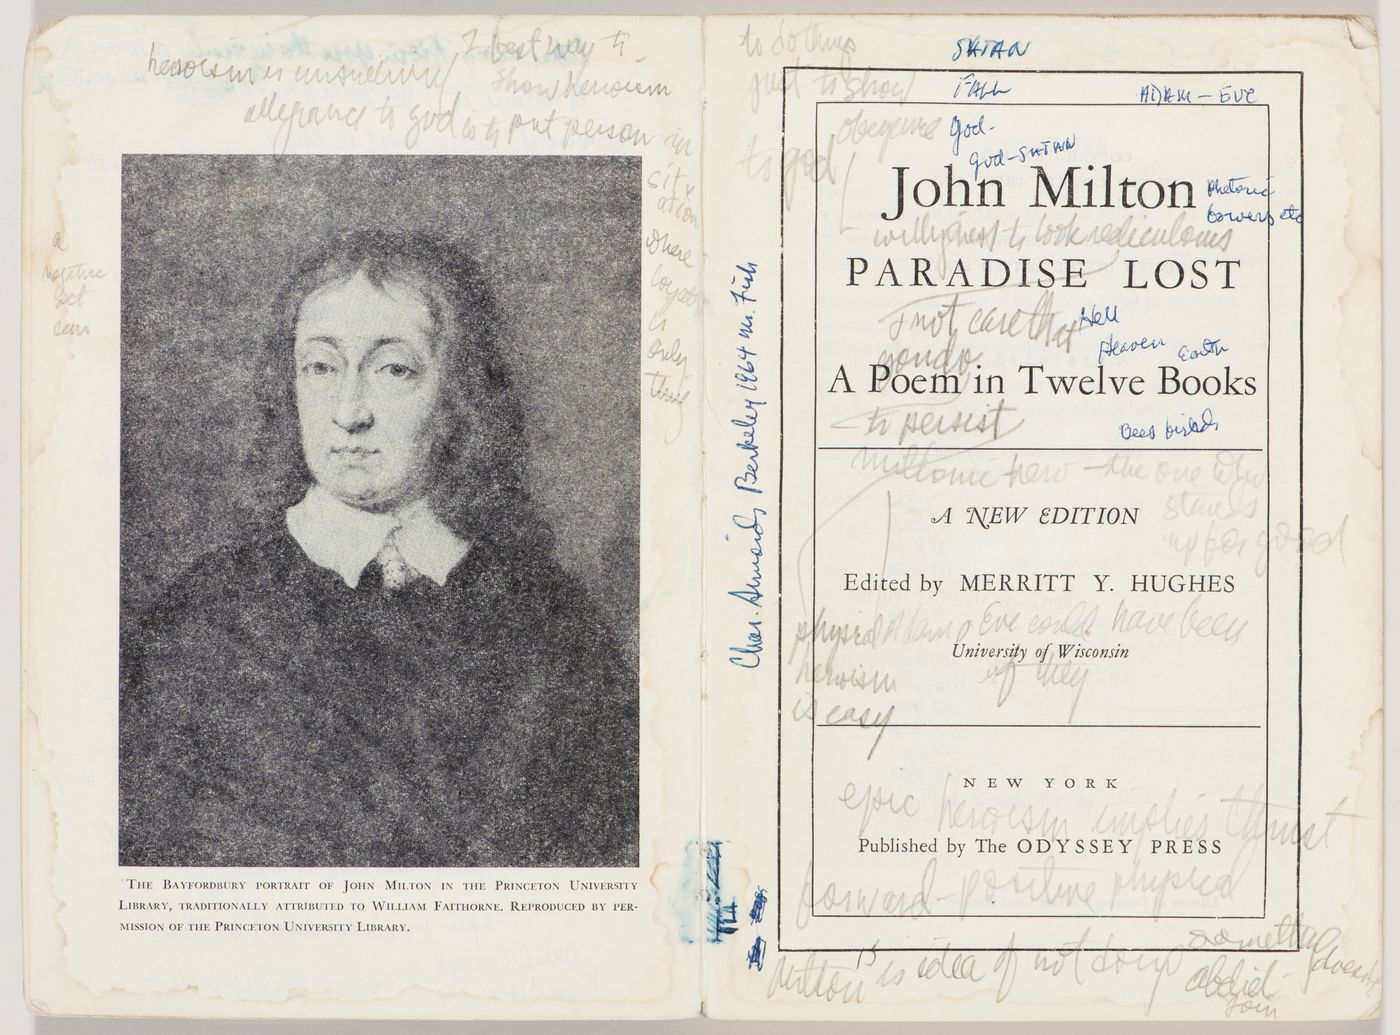 heroism is unswerving
allegiance to god
best way to
show heroism
is to put person in
situ
ation
where
loyalty
is
only
thing
a
negative
act
can
THE BAYFORDBURY PORTRAIT OF JOHN MILTON IN THE PRINCETON UNIVERSITY
LIBRARY, TRADITIONALLY ATTRIBUTED TO WILLIAM FAITHORNE. REPRODUCED BY PER-
MISSION OF THE PRINCETON UNIVERSITY LIBRARY.
to do things
just to show
obedience
to god
SATAN
FALL
ADAM – EVE
god-
god-SATAN
John Milton
rhetoric
powers etc
willingness to look rediculous
PARADISE LOST
not care that
Hell
Heaven
Earth
you do
A Poem in Twelve Books
to persist
Miltonic hero – the one who
stands
up for good
A NEW EDITION
Edited by MERRITT Y. HUGHES
physical
heroism
is easy
Adam & Eve could have been
University of Wisconsin
NEW YORK
epic heroism implies thrust
Published by The ODYSSEY PRESS
forward – positive physical
Milton is idea of not doing
something
abdiel
doesnt
join
Berkeley 1964 Mr. Fish